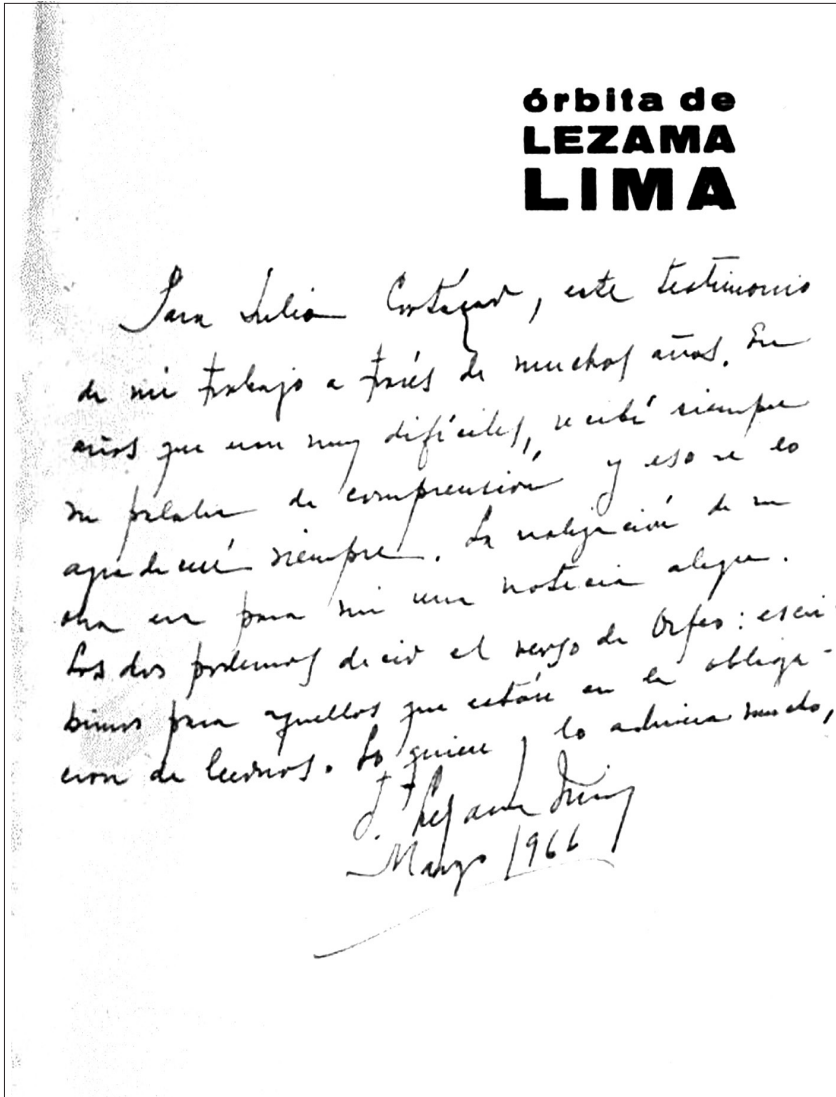 órbita de
LEZAMA
LIMA
Para Julio Cortázar, este testimonio
de mi trabajo a través de muchos años. En
años que eran muy difíciles, recibí siempre
su palabra de comprensión y eso se lo
agradeceré siempre. La realización de su
obra era para mi una noticia alegre.
Los dos podemos decir el verso de Orfeo: escri-
bimos para aquellos que están en la obliga-
ción de leernos. Lo quiere y lo admira mucho,
J. Lezama Lima
Marzo 1966